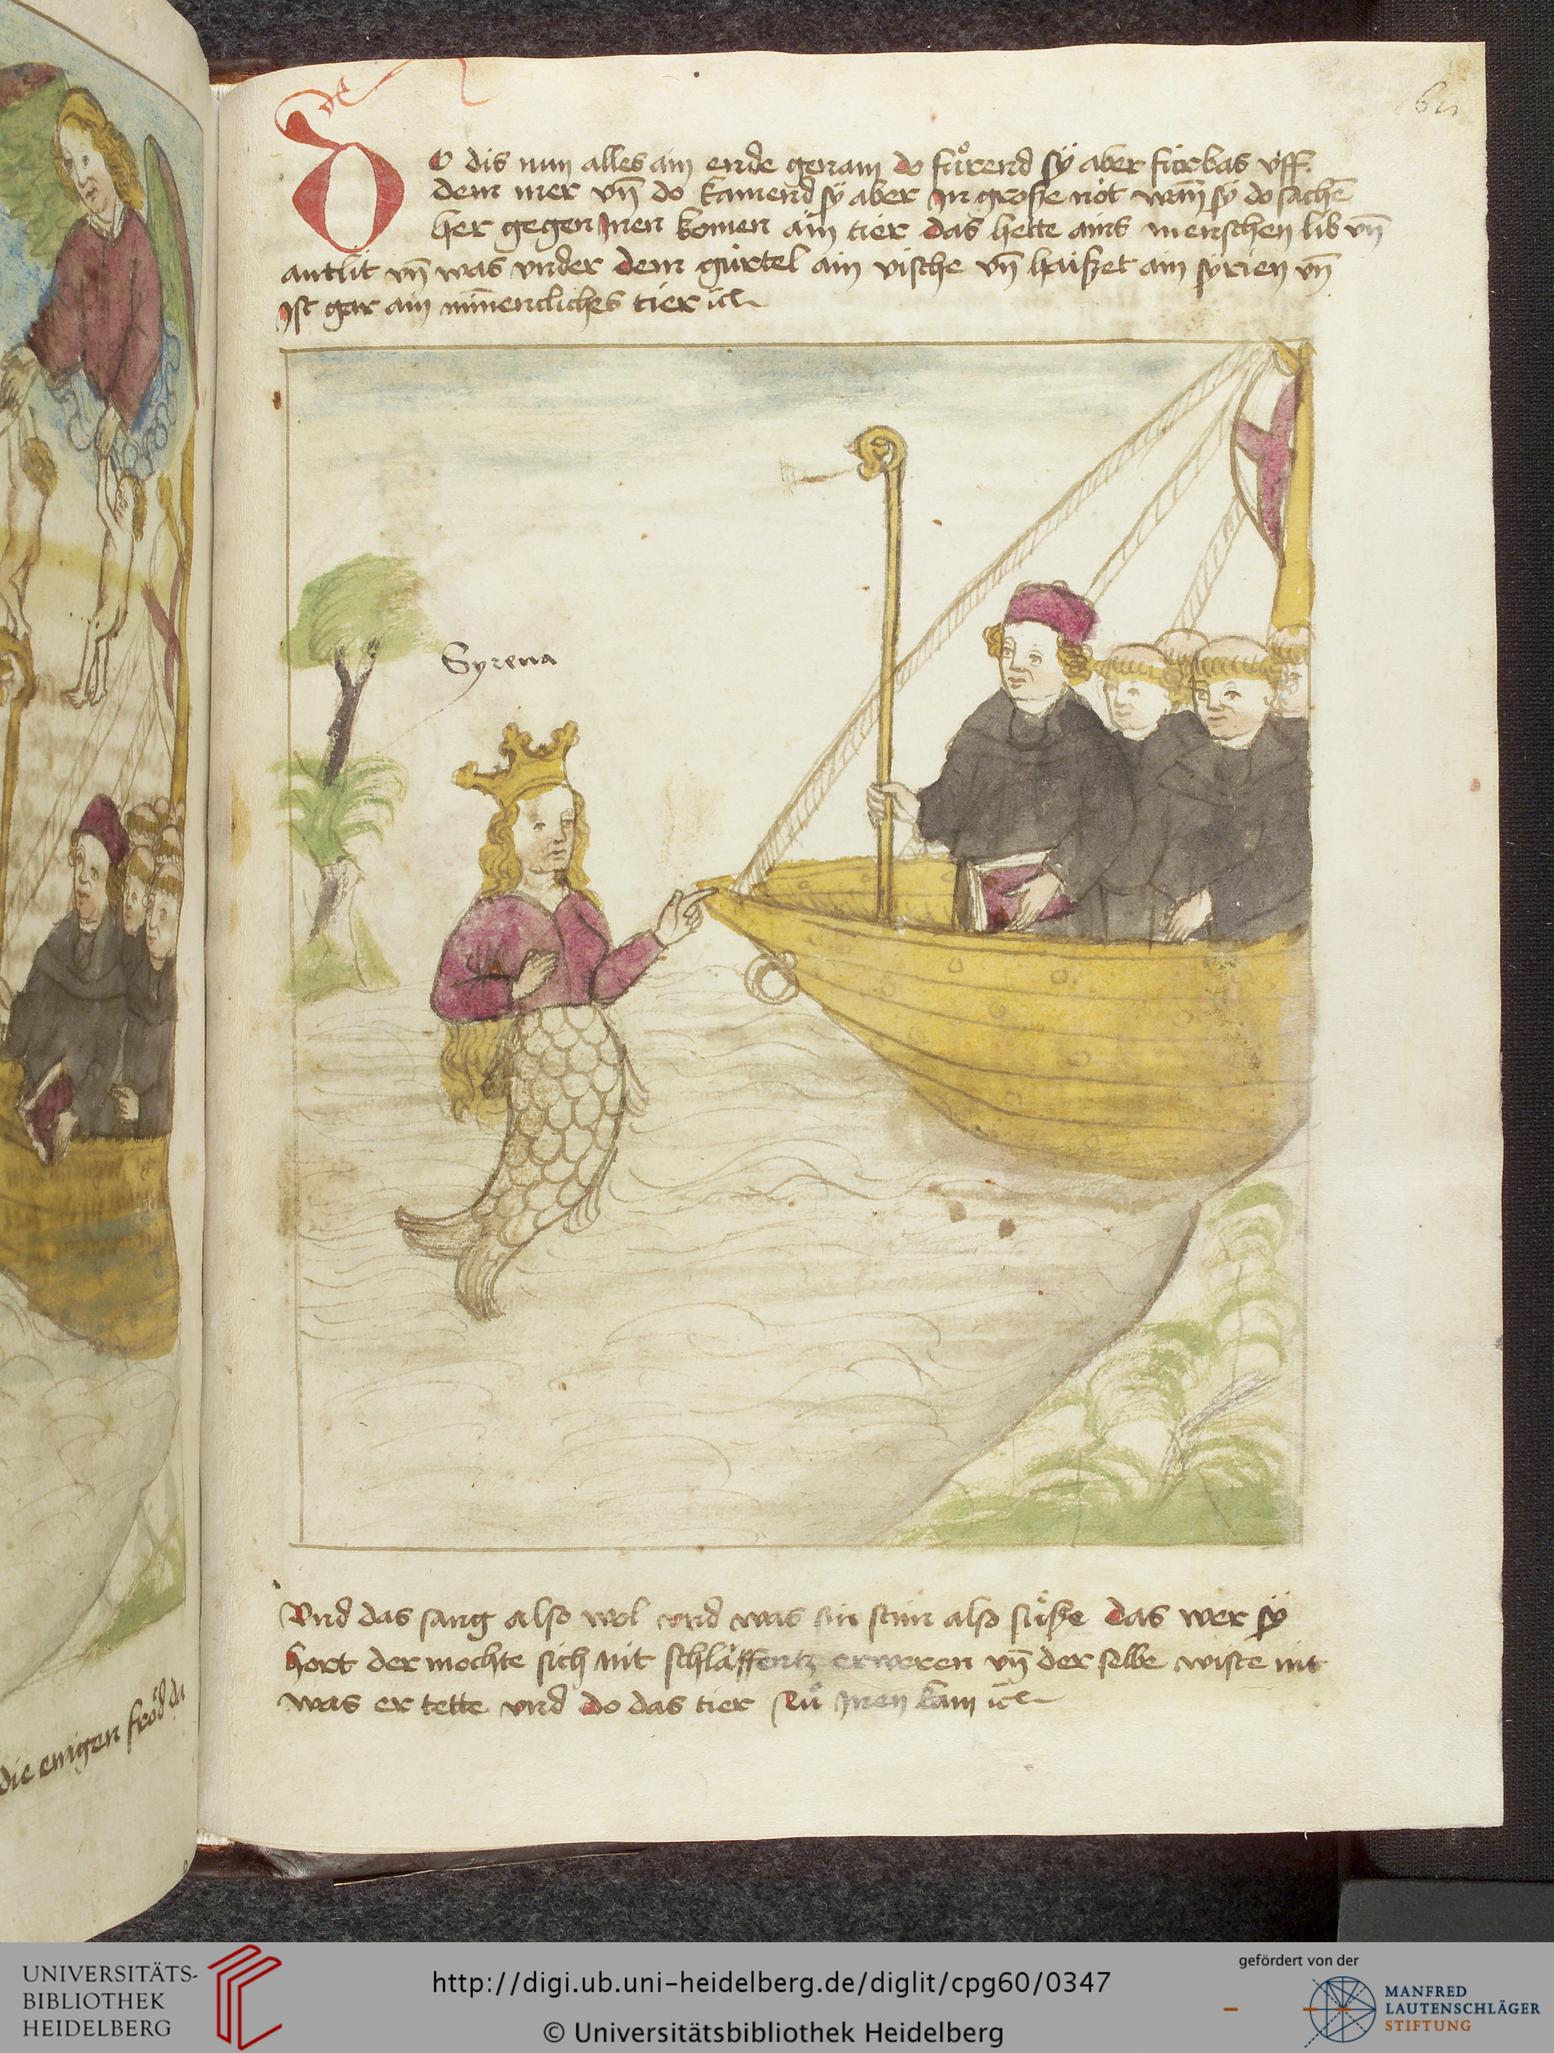 DO dis nun alles ain ende genam do fuͦrend sÿ aber fúrbas vff
dem mer vn̄ do kamend sÿ aber in grosse not wan̄ sÿ do sachē
her gegen Jnen komen ain tier das hette ains menschen lib vn̄
antlit vn̄ was vnder dem gúrtel ain vische vn̄ haisset ain syrien vn̄
Jst gar ain minencliches tier
Syrena
Vnd das sang also wol vnd was sin stim also sússe das wer sÿ
hort der mochte sich nit schlaffentz erweren vn̄ der selbe wiste nit
was er tette vnd do das tier zuͦ Jnen kam
die ewigen fröd da
UNIVERSITÄTS-
BIBLIOTHEK
HEIDELBERG
http://digi.ub.uni-heidelberg.de/diglit/cpg60/0347
© Universitätsbibliothek Heidelberg
gefördert von der
MANFRED
LAUTENSCHLÄGER
STIFTUNG